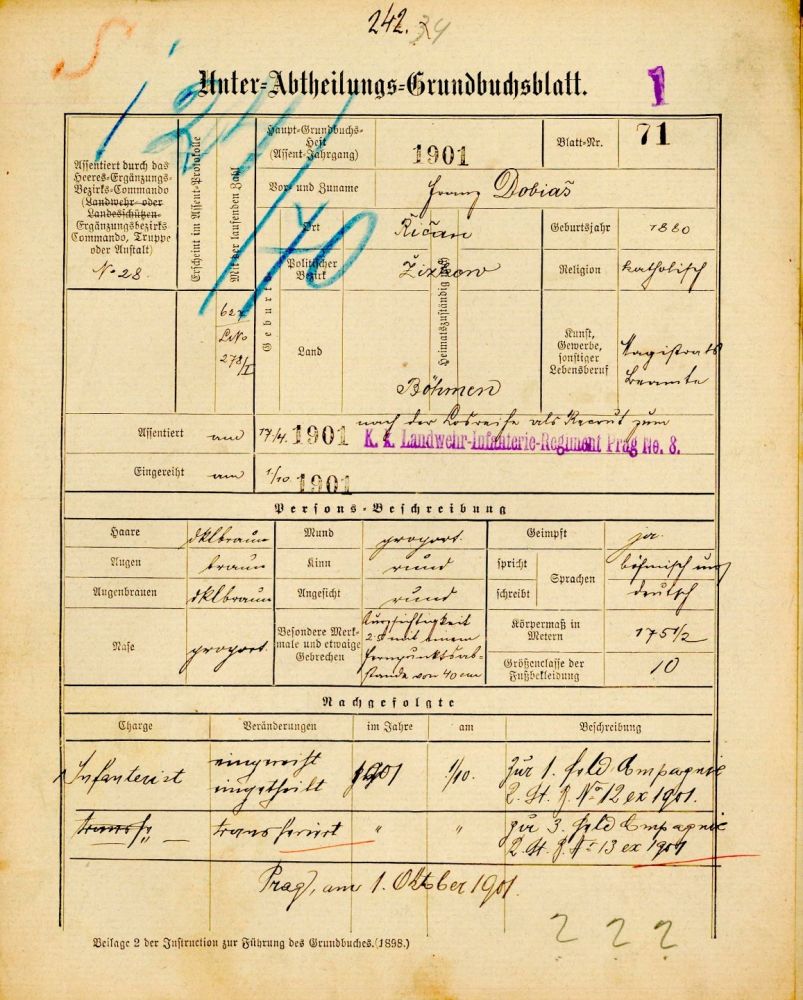 242.
34
Unter-Abtheilungs-Grundbuchsblatt.
1
Assentiert durch das
Heeres-Ergänzungs-
Bezirks-Commando
(Landwehr- oder
Landesschützen-
Ergänzungsbezirks-
Commando, Truppe
oder Anstalt)
No 28.
Erscheint im Assent-Protokolle
Mit der laufenden Zahl
627
278/I
Haupt-Grundbuchs-
Heft
(Assent-Jahrgang)
1901
Blatt-Nr.
71
Vor- und Zuname
Franz Dobiaš
Geburts
Heimatszuständig
Ort
Řičan
Geburtsjahr
1880
Politischer
Bezirk
Žižkow
Religion
katholisch
Land
Böhmen
Kunst,
Gewerbe,
sonstiger
Lebensberuf
Magistrats
Beamte
Assentiert am
17/4. 1901
nach der Losreihe als Recrut zum
K. k. Landwehr-Infanterie-Regiment Prag No. 8.
Eingereiht am
1/10. 1901
Persons-Beschreibung
Haare dklbraun
Mund proport.
Geimpft ja.
Augen braun
Kinn rund
spricht
schreibt
Sprachen
böhmisch und
deutsch
Augenbrauen dklbraun
Angesicht rund
Nase proport.
Besondere Merk-
male und etwaige
Gebrechen
Kurzsichtigkeit
2·5 mit einem
Fernpunktsab-
stande von 40 cm
Körpermaß in
Metern
175 1/2
Größenclasse der
Fußbekleidung
10
Nachgefolgte
Charge Veränderungen im Jahre am Beschreibung
Infanterist
eingereiht
eingetheilt
1901 1/10.
zur 1. Feld Compagnie
No 12 ex 1901.
transf
transferirt " "
zur 3. Feld Compagnie
No 13 ex 1901
Prag, am 1. Oktober 1901.
? ? ?
Beilage 2 der Instruction zur Führung des Grundbuches. (1898.)